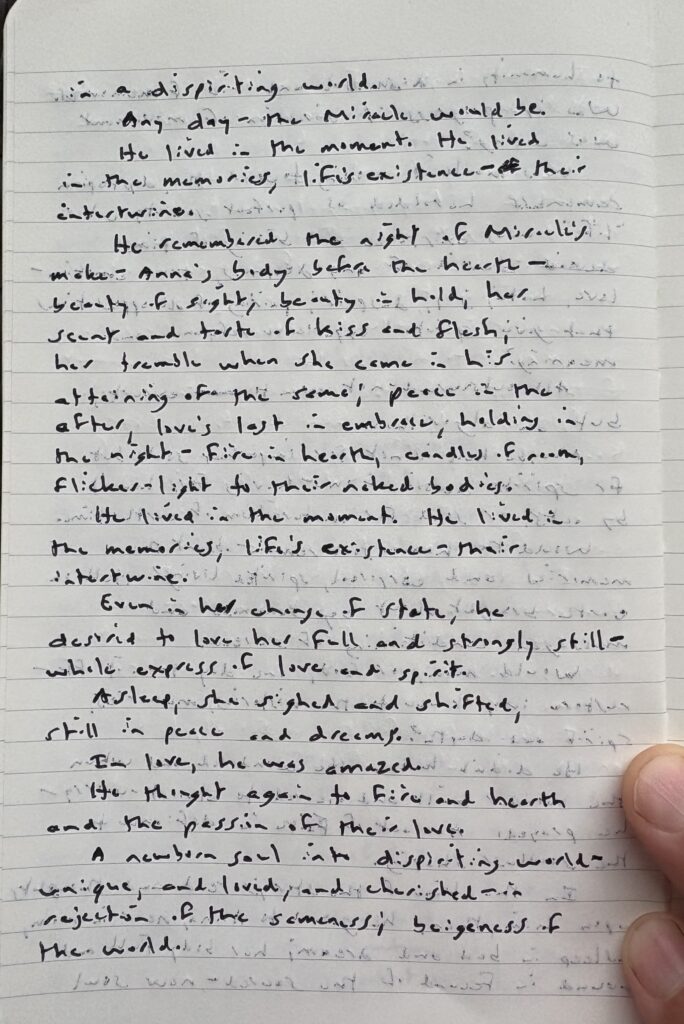 in a dispiriting world.
Any day – the Miracle would be.
He lived in the moment. He lived
in the memories, life's existence – their
intertwine.
He remembered the night of Miracle's
make – Anna's body before the hearth –
beauty of sight, beauty in hold, her
scent and taste of kiss and flesh,
her tremble when she came in his
attaining of the same; peace in the
after, love's last in embrace, holding in
the night – fire in hearth, candles of room,
flicker-light to their naked bodies.
He lived in the moment. He lived in
the memories, life's existence – their
intertwine.
Even in her change of state, he
desired to love her full and strongly still –
whole express of love and spirit.
Asleep, she sighed and shifted,
still in peace and dreams.
In love, he was amazed.
He thought again to fire and hearth
and the passion of their love.
A newborn soul into dispiriting world –
unique, and loved, and cherished – in
rejection of the sameness; beigeness of
the world.